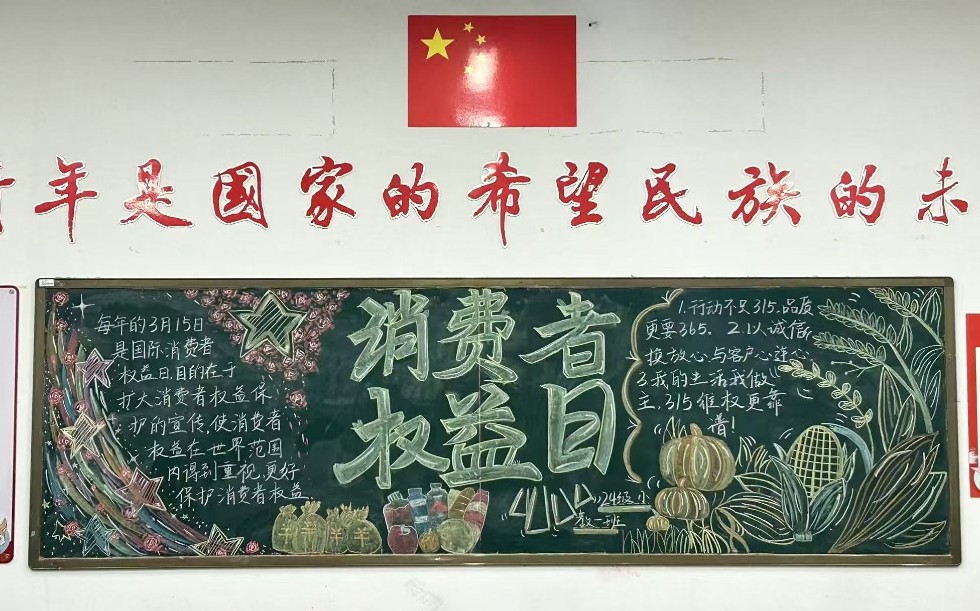 青年是国家的希望民族的未
消费者
权益日
每年的3月15日
是国际消费者
权益日,目的在于
扩大消费者权益保
护的宣传,使消费者
权益在世界范围
内得到重视,更好
保护消费者权益
1.行动不只315,品质
更要365. 2.以诚信
换放心,与客户心连心
3.我的生活我做
主,315维权更靠
谱!
24级小
教一班